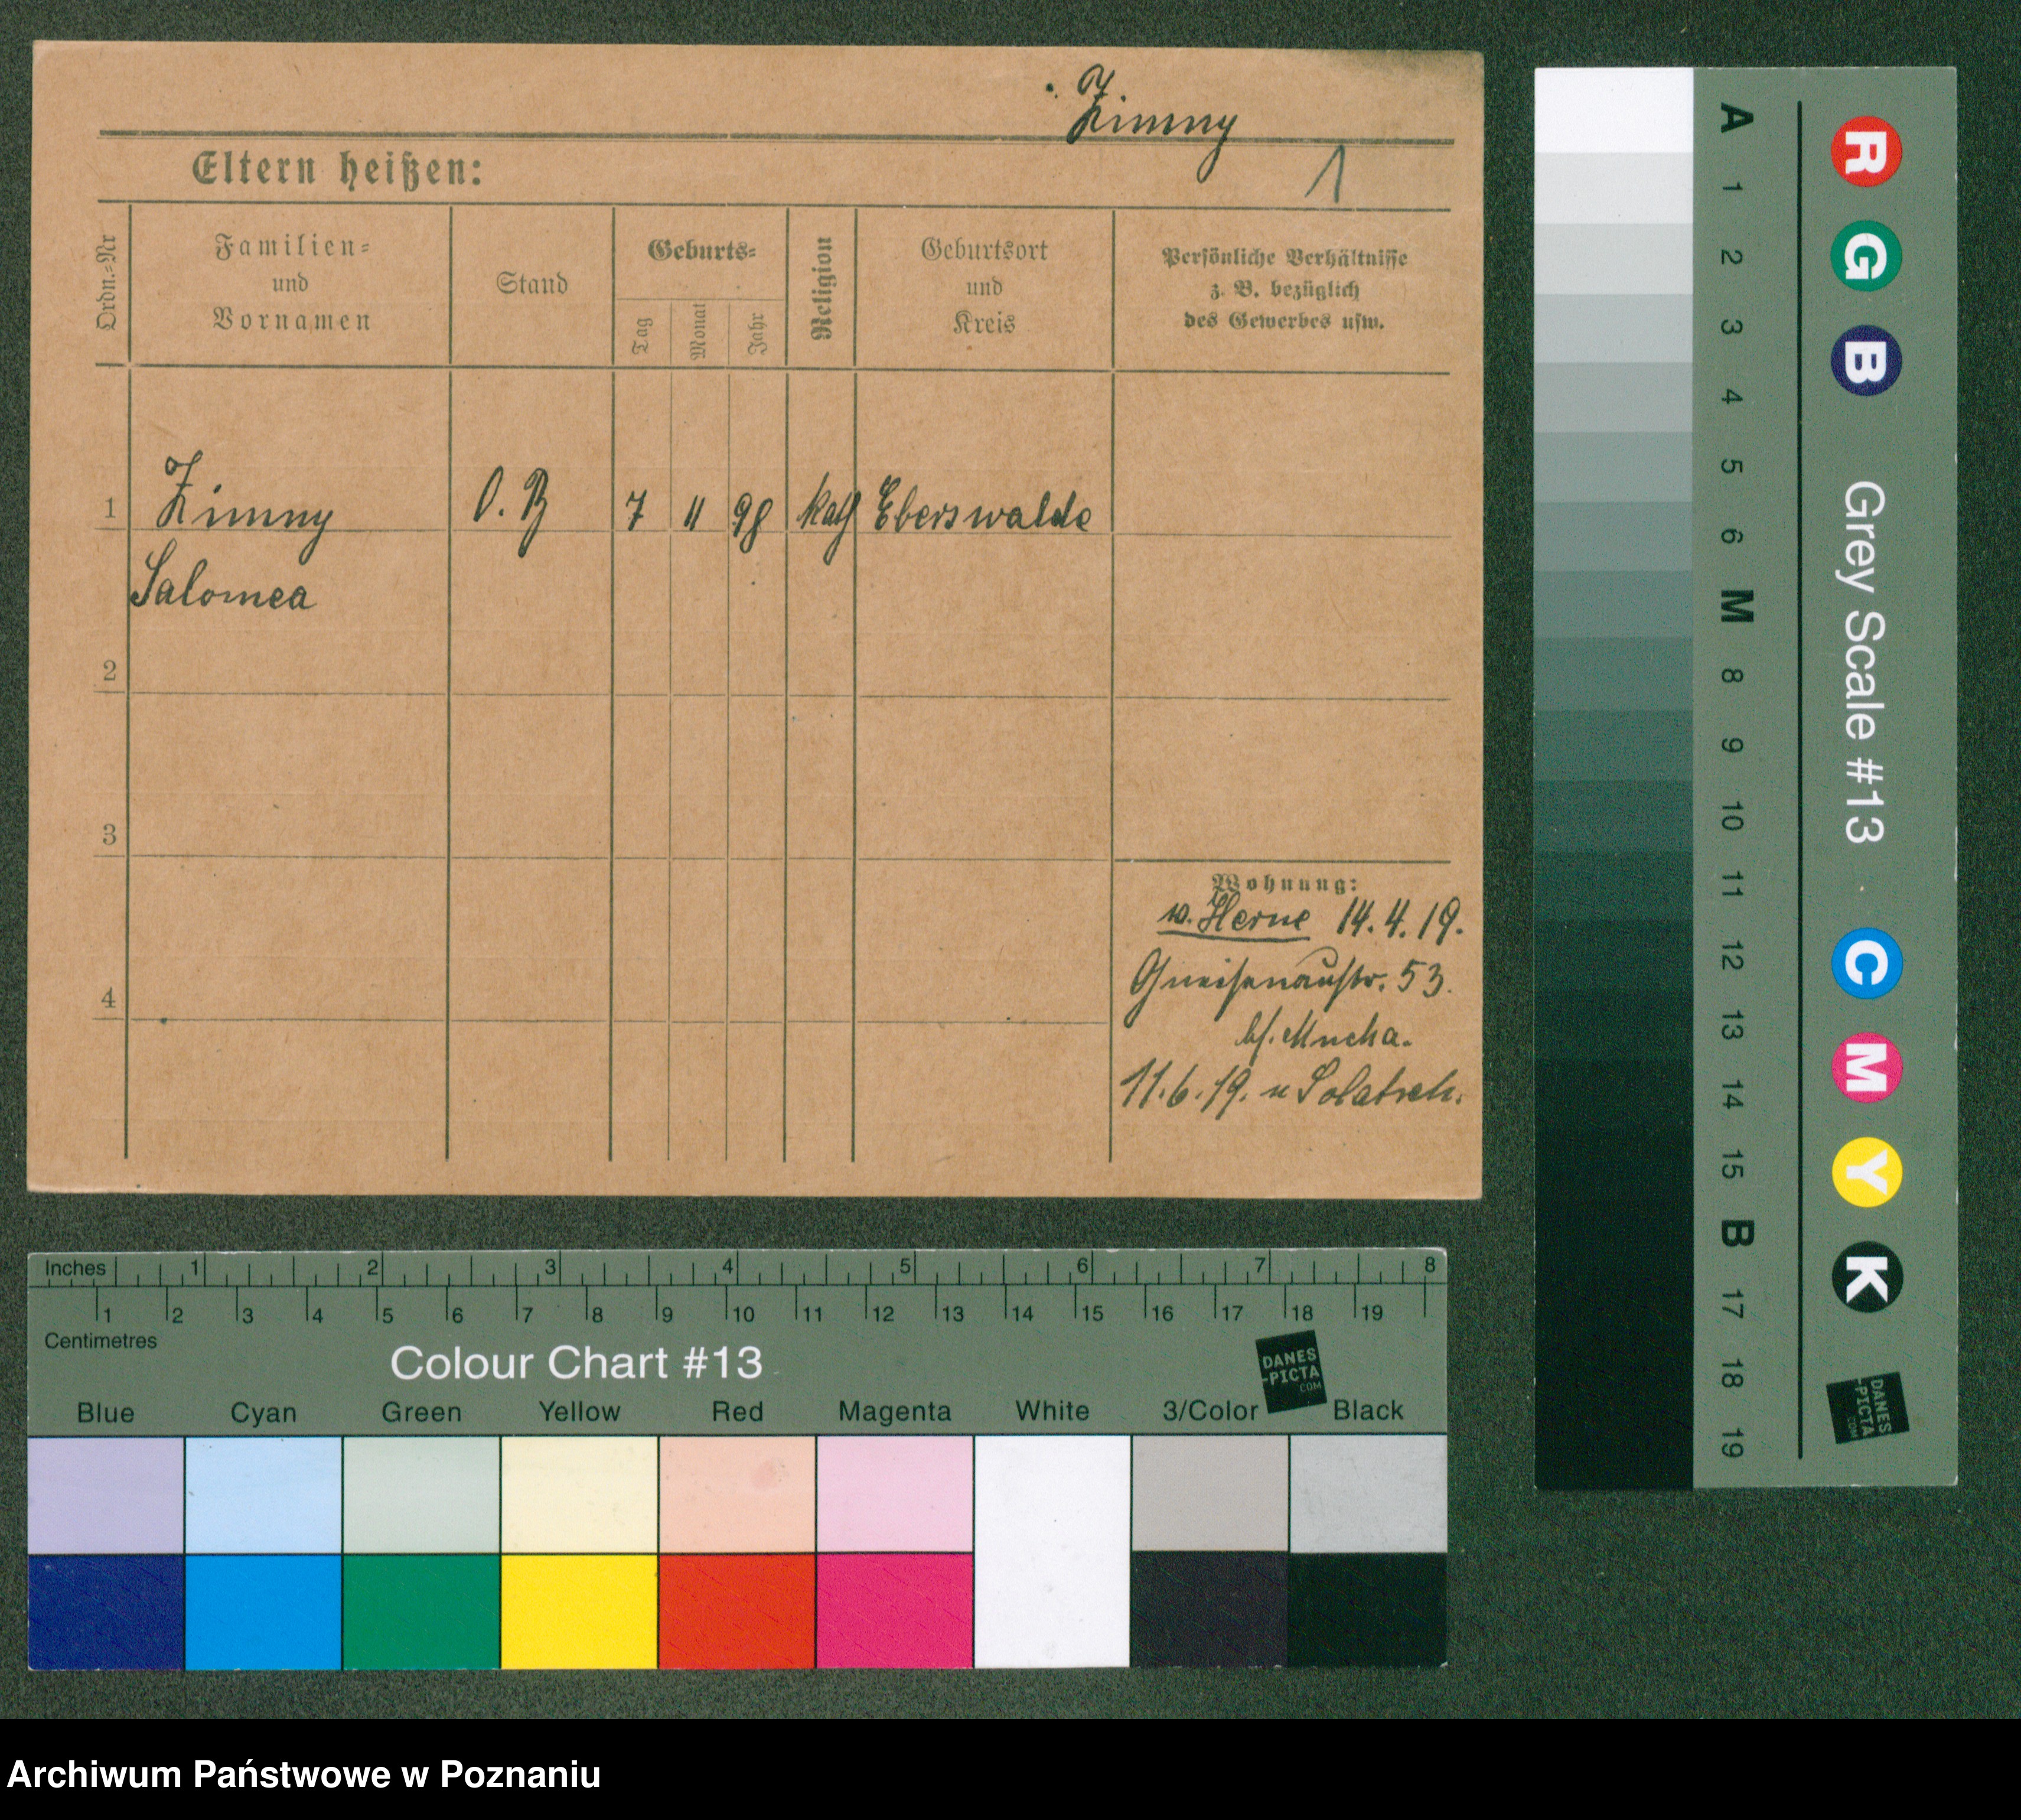 Zimny
1
Eltern heißen:
Ordn.=Nr
Familien=
und
Vornamen
Stand
Geburts=
Tag
Monat
Jahr
Religion
Geburtsort
und
Kreis
Persönliche Verhältnisse
z. B. bezüglich
des Gewerbes usw.
1 Zimny O. B 7 11 98 kath Eberswalde
Salomea
2
3
4
Wohnung:
w. Herne 14.4.19.
Gneisenaustr. 53.
bf. Mucha.
11.6.19. n
Inches 1 2 3 4 5 6 7 8
1 2 3 4 5 6 7 8 9 10 11 12 13 14 15 16 17 18 19
Centimetres
Colour Chart #13
DANES
-PICTA
.COM
Blue Cyan Green Yellow Red Magenta White 3/Color Black
A 1 2 3 4 5 6 M 8 9 10 11 12 13 14 15 B 17 18 19
R G B Grey Scale #13 C M Y K
DANES
-PICTA
.COM
Archiwum Państwowe w Poznaniu